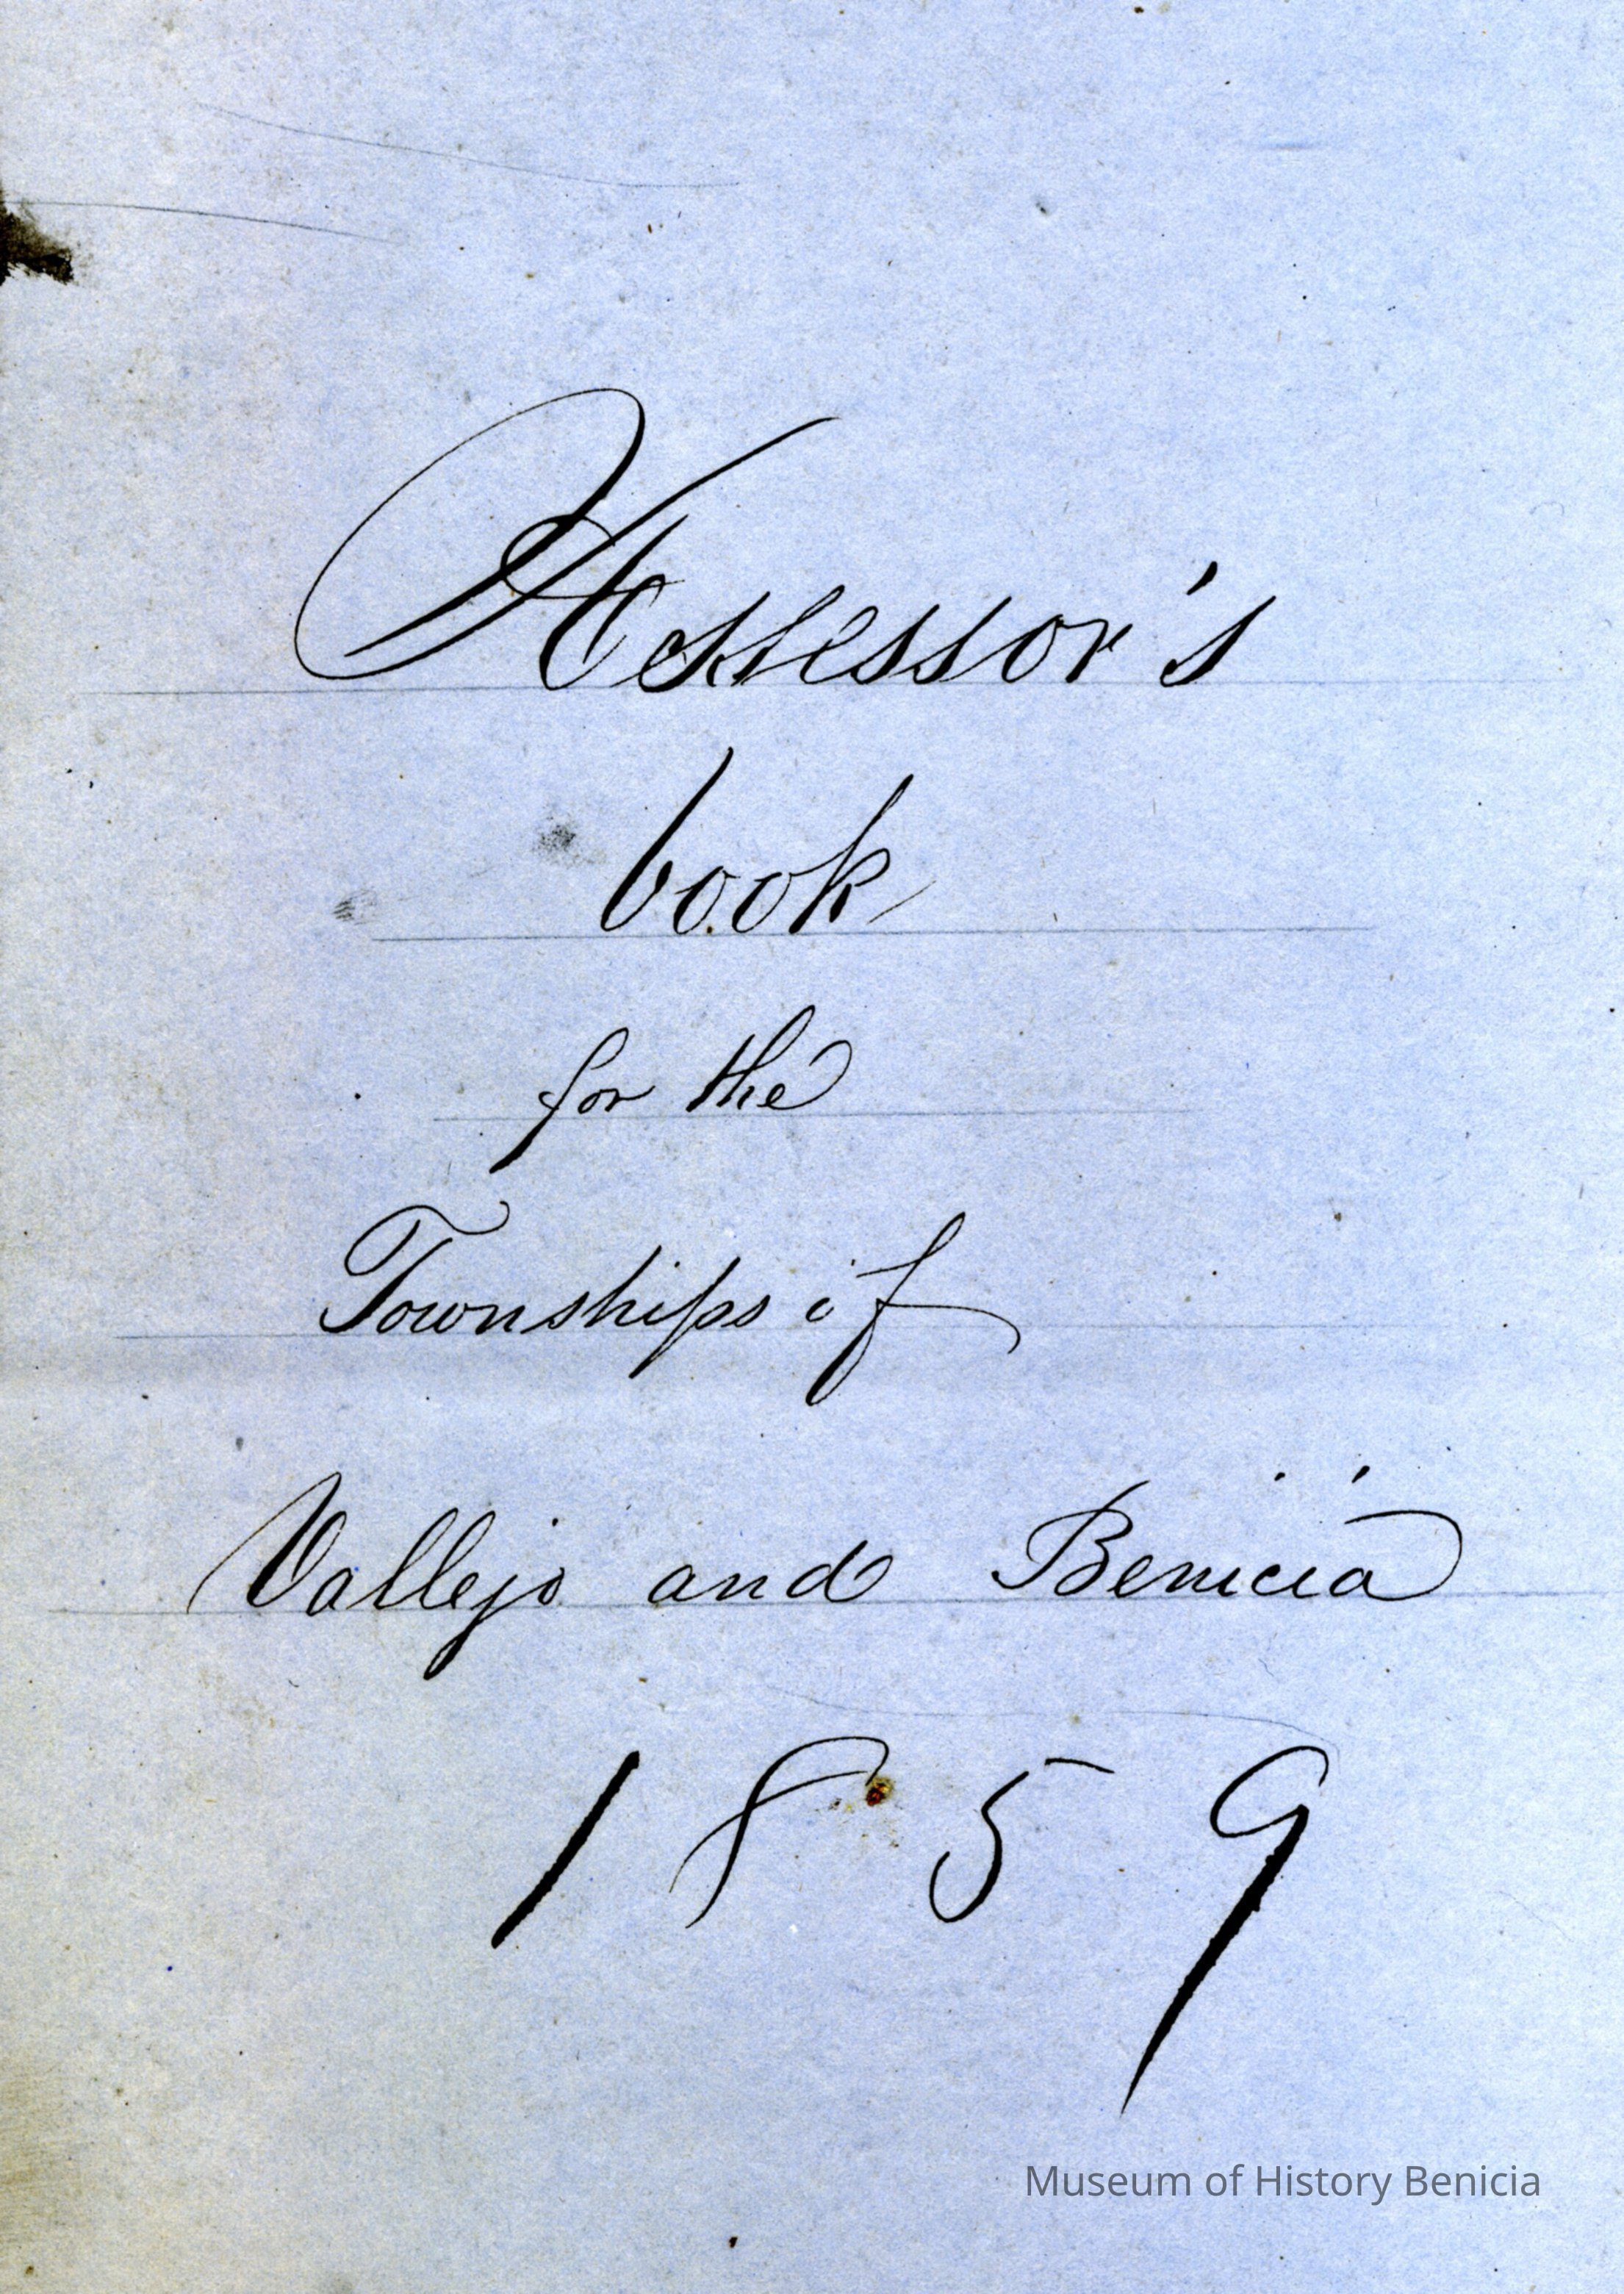 Assessor's
book
for the
Townships of
Vallejo and Benicia
1859
Museum of History Benicia